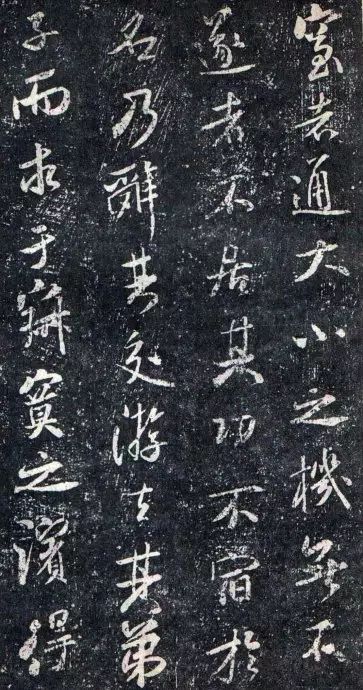 者通大小之機無不
遂者不居其功不宿於
名乃辭其交游去其弟
子而求于寂寞之濱得